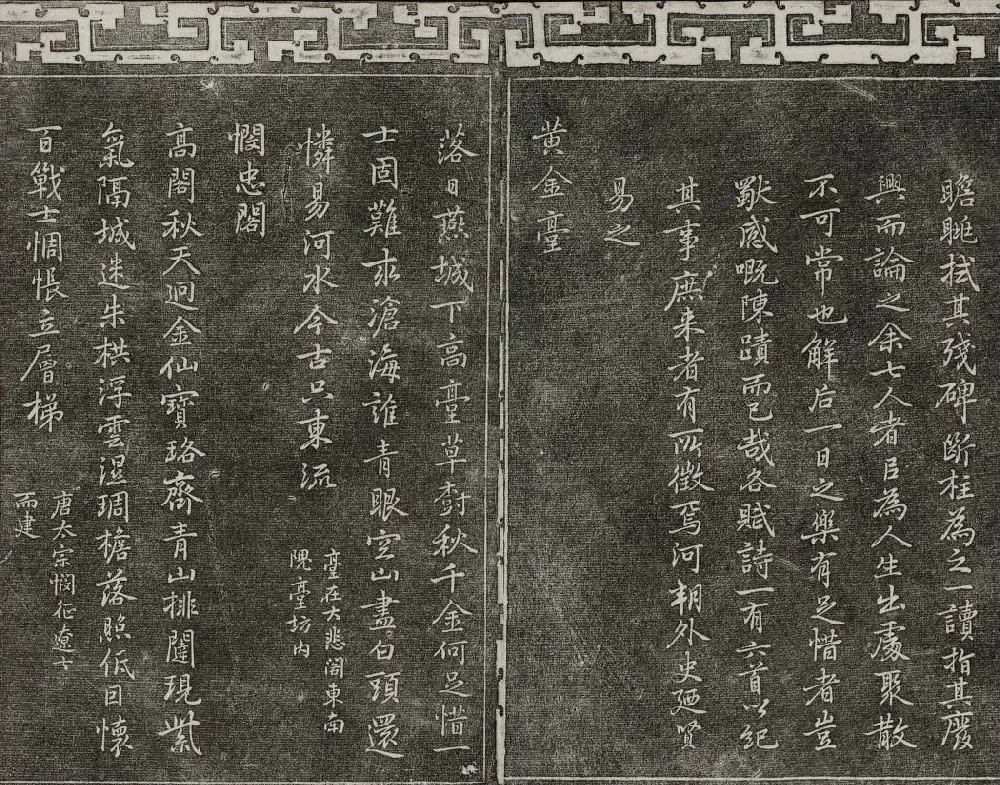 瞻眺拭其殘碑斷柱為之一讀指其廢
興而論之余七人者以為人生出處聚散
不可常也解后一日之樂有足惜者豈
獨感嘅陳蹟而已哉各賦詩一有六首以紀
其事庶来者有所徵焉河朔外史廼賢
易之
黄金臺
落日燕城下高臺草樹秋千金何足惜一
士固難求滄海誰青眼空山盡白頭還
憐易河水今古只東流
臺在大悲閣東南
隗臺坊内
憫忠閣
高閣秋天迥金仙寶珞齊青山排闥現紫
氣隔城迷朱栱浮雲濕琱檐落照低因懷
百戰士惆悵立層梯
唐太宗憫征遼士
而建